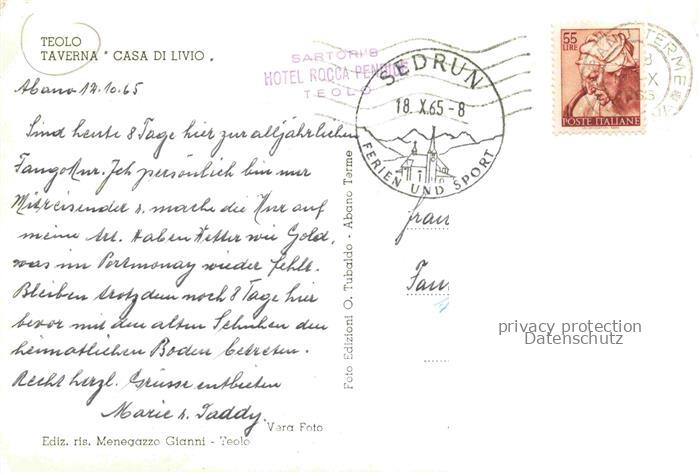 TEOLO
TAVERNA " CASA DI LIVIO "
SARTORI'S
HOTEL ROCCA PENDICE
TEOLO
SEDRUN
18.X.65-8
FERIEN UND SPORT
55
LIRE
POSTE ITALIANE
TERME
Abano 12.10.65
Sind heute 8 Tage hier zur alljährlichen
Fango Kur. Ich persönlich bin nur
Mitreisender u. mache die Kur auf
meine Art. Haben Wetter wie Gold,
was im Portmonay wieder fehlt.
Bleiben trotzdem noch 8 Tage hier
bevor mit den alten Schuhen den
heimatlichen Boden betreten.
Recht herzl. Grüsse entbieten
Marie u. Taddy.
Vera Foto
Ediz. ris. Menegazzo Gianni - Teolo
Foto Edizioni O. Tubaldo - Abano Terme
privacy protection
Datenschutz